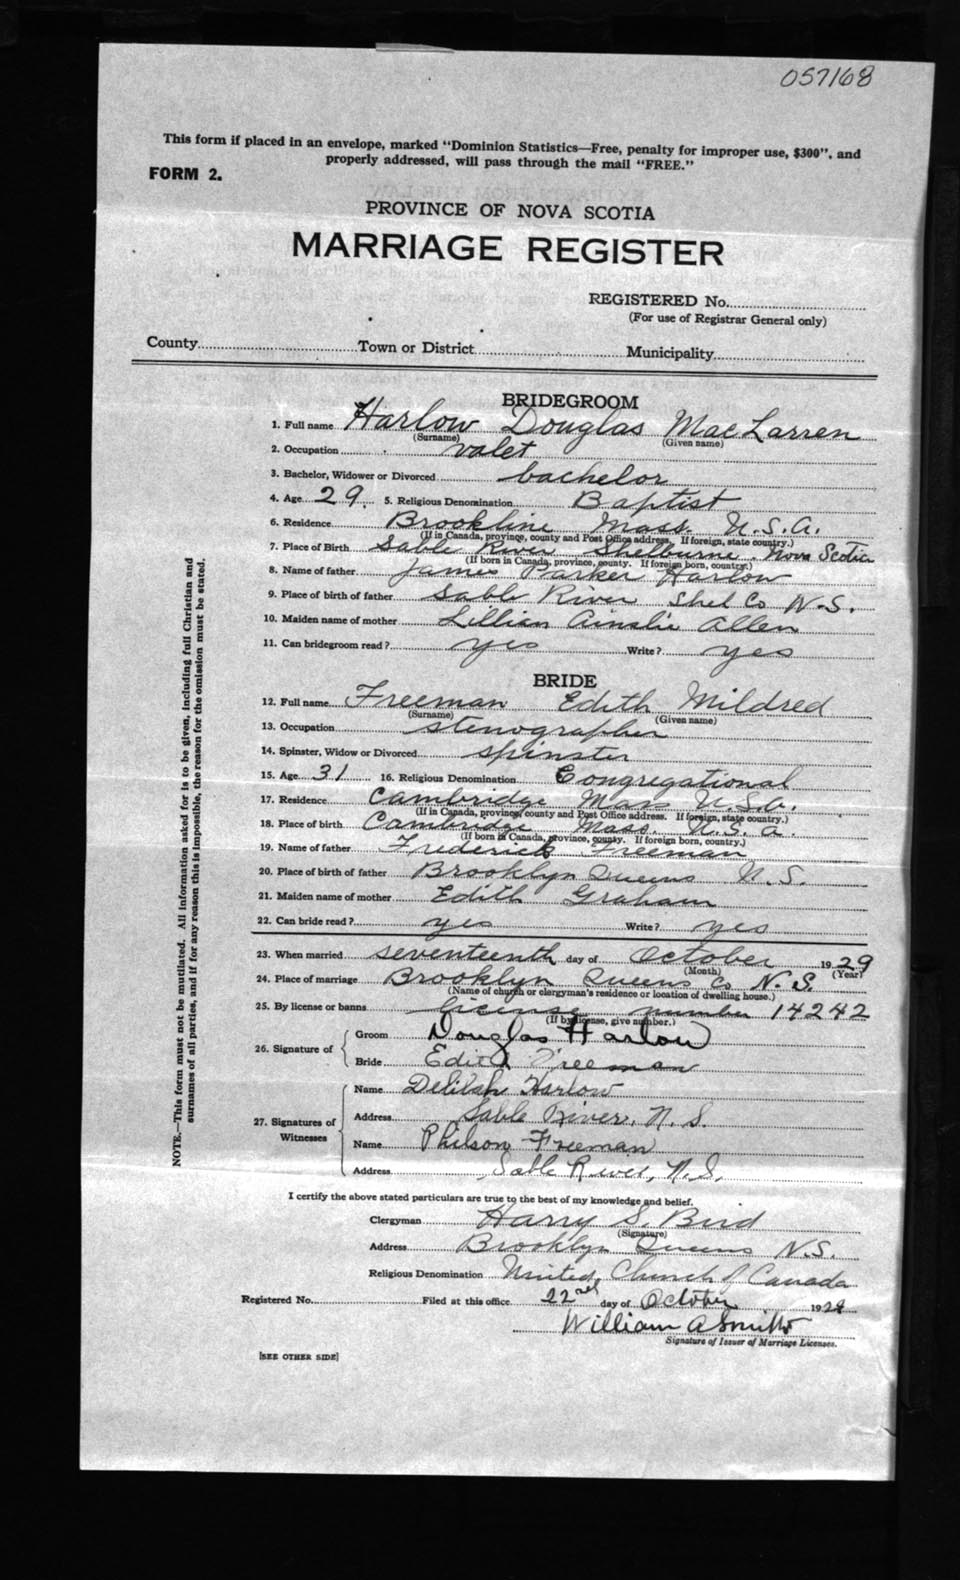 057168
This form if placed in an envelope, marked "Dominion Statistics—Free, penalty for improper use, $300", and
properly addressed, will pass through the mail "FREE."
FORM 2.
PROVINCE OF NOVA SCOTIA
MARRIAGE REGISTER
REGISTERED No.
(For use of Registrar General only)
County Town or District Municipality
BRIDEGROOM
1. Full name Harlow Douglas MacLarren
(Surname) (Given name)
2. Occupation valet
3. Bachelor, Widower or Divorced bachelor
4. Age 29 5. Religious Denomination Baptist
6. Residence Brookline Mass. U.S.A.
(If in Canada, province, county and Post Office address. If foreign, state country.)
7. Place of Birth Sable River Shelburne. Nova Scotia
(If born in Canada, province, county. If foreign born, country.)
8. Name of father James Parker Harlow
9. Place of birth of father Sable River Shel Co N.S.
10. Maiden name of mother Lillian Ainslie Allen
11. Can bridegroom read? yes Write? yes
BRIDE
12. Full name Freeman Edith Mildred
(Surname) (Given name)
13. Occupation stenographer
14. Spinster, Widow or Divorced spinster
15. Age 31 16. Religious Denomination Congregational
17. Residence Cambridge Mass U.S.A.
(If in Canada, province, county and Post Office address. If foreign, state country.)
18. Place of birth Cambridge Mass. U.S.A.
(If born in Canada, province, county. If foreign born, country.)
19. Name of father Frederick Freeman
20. Place of birth of father Brooklyn Queens N.S.
21. Maiden name of mother Edith Graham
22. Can bride read? yes Write? yes
23. When married seventeenth day of October 1929
(Month) (Year)
24. Place of marriage Brooklyn Queens Co N.S.
(Name of church or clergyman's residence or location of dwelling house.)
25. By license or banns license number 14242
(If by license, give number.)
26. Signature of Groom Douglas Harlow
Bride Edith Freeman
27. Signatures of Witnesses Name Delilah Harlow
Address Sable River, N.S.
Name Philson Freeman
Address Sable River, N.S.
I certify the above stated particulars are true to the best of my knowledge and belief.
Clergyman Harry S. Bird
(Signature)
Address Brooklyn Queens N.S.
Religious Denomination United Church of Canada
Registered No. Filed at this office 22nd day of October 1929
William A Smith
Signature of Issuer of Marriage Licenses.
[SEE OTHER SIDE]
NOTE.—This form must not be mutilated. All information asked for is to be given, including full Christian and
surnames of all parties, and if for any reason this is impossible, the reason for the omission must be stated.